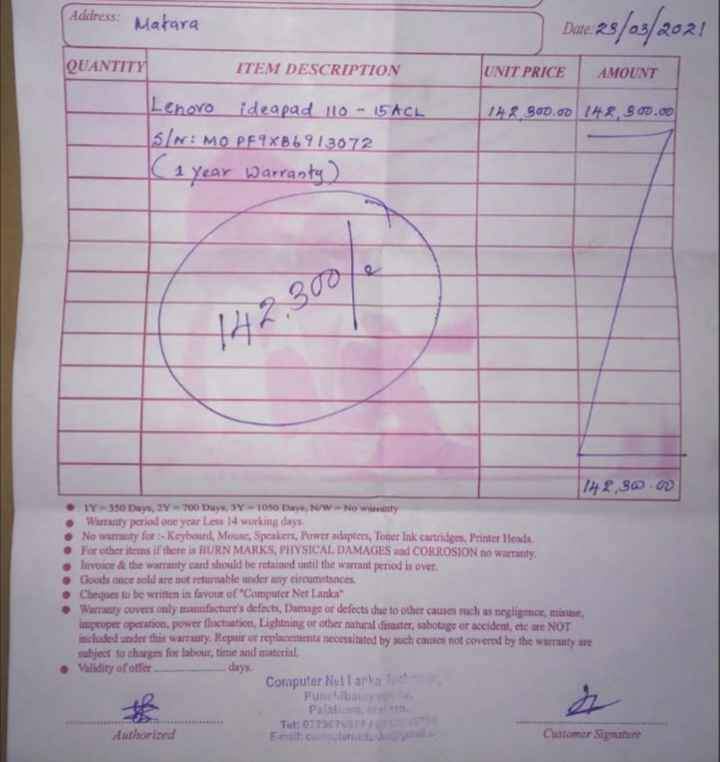 Address: Matara
Date: 23/03/2021
QUANTITY ITEM DESCRIPTION UNIT PRICE AMOUNT
Lenovo ideapad 110 - 15ACL 142,300.00 142,300.00
S/N: MO PF9XB6913072
(1 year Warranty)
142,300/=
142,300.00
1Y - 350 Days, 2Y - 700 Days, 3Y - 1050 Days, N/W - No warranty
Warranty period one year Less 14 working days.
No warranty for :- Keyboard, Mouse, Speakers, Power adapters, Toner Ink cartridges, Printer Heads.
For other items if there is BURN MARKS, PHYSICAL DAMAGES and CORROSION no warranty.
Invoice & the warranty card should be retained until the warrant period is over.
Goods once sold are not returnable under any circumstances.
Cheques to be written in favour of "Computer Net Lanka"
Warranty covers only manufacture's defects, Damage or defects due to other causes such as negligence, misuse,
improper operation, power fluctuation, Lightning or other natural disaster, sabotage or accident, etc are NOT
included under this warranty. Repair or replacements necessitated by such causes not covered by the warranty are
subject to charges for labour, time and material.
Validity of offer days.
Computer Net Lanka
Tel:
E-mail:
Authorized
Customer Signature